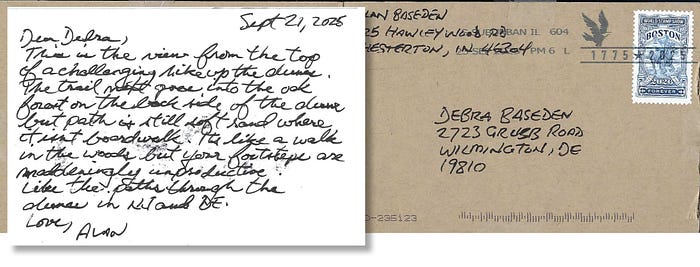 Sept 21, 2025
Dear Debra,
This is the view from the top
of a challenging hike up the dune.
The trail next goes into the oak
forest on the back side of the dune
but path is still soft sand where
it isnt boardwalk. Its like a walk
in the woods but your footsteps are
maddeningly unproductive.
Like the paths through the
dunes in NJ and DE.
Love,
ALAN
LAN BASEDEN
25 HAWLEYWOOD RD
HESTERTON, IN 46304
BAN IL 604
PM 6 L
1775
WORLD STAMP SHOW
BOSTON
FOREVER
DEBRA BASEDEN
2723 GRUBB ROAD
WILMINGTON, DE
19810
D-235123